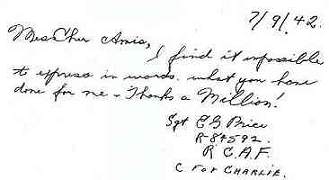 7/9/42.
Mes Cher Amis,
I find it impossible
to express in words what you have
done for me - Thanks a Million!
Sgt E G Price
R-84592.
R.C.A.F.
C FOR CHARLIE.